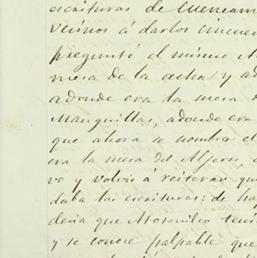 escrituras de Cuencam
vecinos á darlos cincue
preguntó el mismo A
mesa de la acha y ad
adonde era la mesa d
Manguillas, adonde era
que ahora se nombra el
era la mesa del Alferes,
vo y volvió á reiterar que
daba las escrituras: de ha
deria que tení
y se conoce palpable que